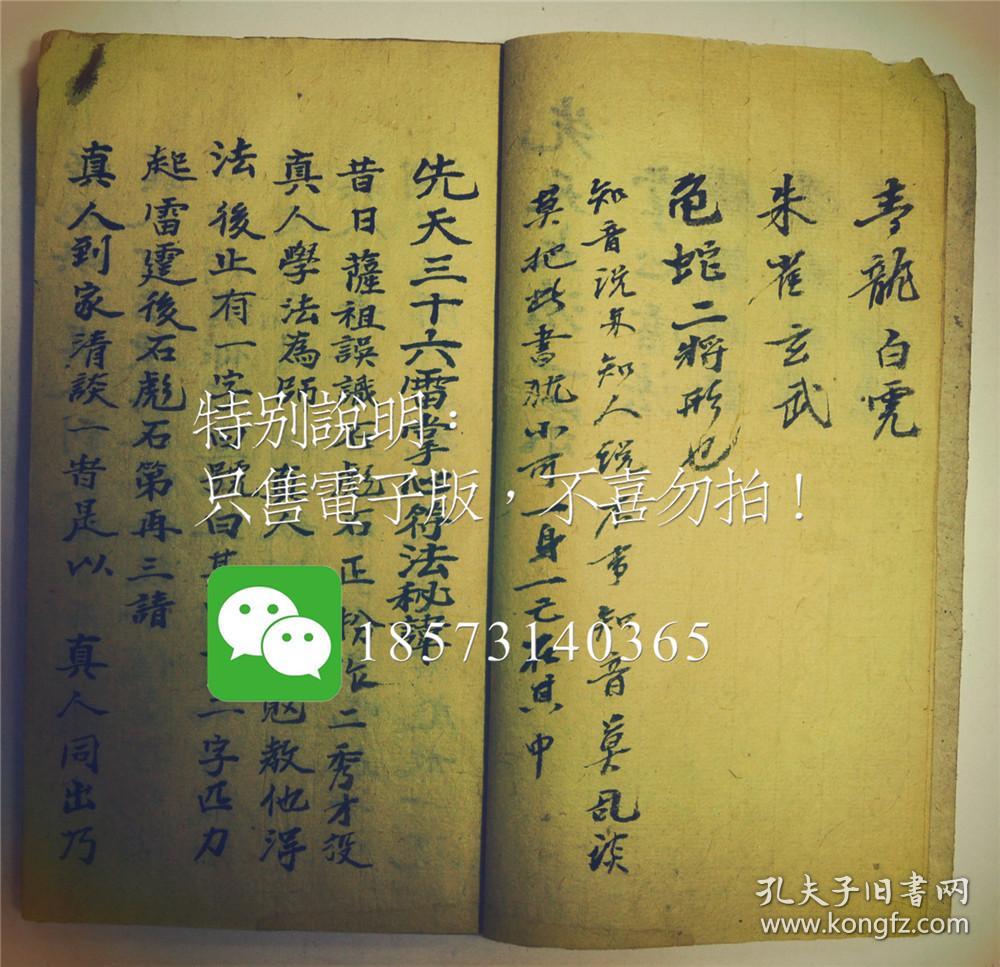 青龍白虎
朱雀玄武
龟蛇二將形也
知音说来知人说 知音莫乱谈
莫把此書 小可一身一己在其中
先天三十六雷掌心符法秘
昔日薩祖誤識石彪石 正 二秀才投
真人學法為師 真 教他得
法後止有一字 曰其 二字匹力
起雷霆後石彪石第再三請
真人到家清談一 是以 真人同出乃
特别說明：
只售電子版，不喜勿拍！
18573140365
孔夫子旧书网
www.kongfz.com